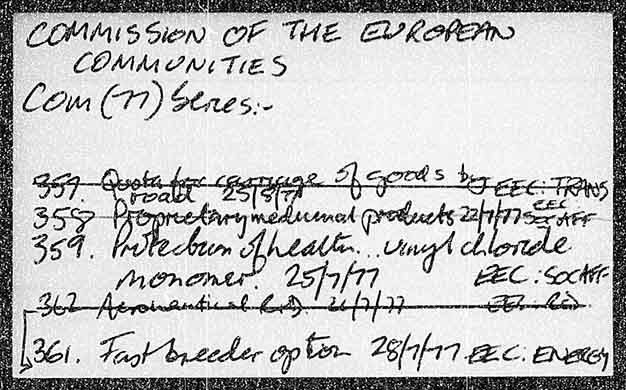 COMMISSION OF THE EUROPEAN
COMMUNITIES
COM (77) Series:-
357. Quota for carriage of goods by
road 25/7/77 EEC: TRANS
358 Proprietary medicinal products 22/7/77 EEC SOC AFF
359. Protection of health... vinyl chloride
monomer. 25/7/77 EEC: SOCAFF
362 Aeronautical R&D 26/7/77 EEC: R&D
361. Fast breeder option 28/7/77 EEC: ENERGY